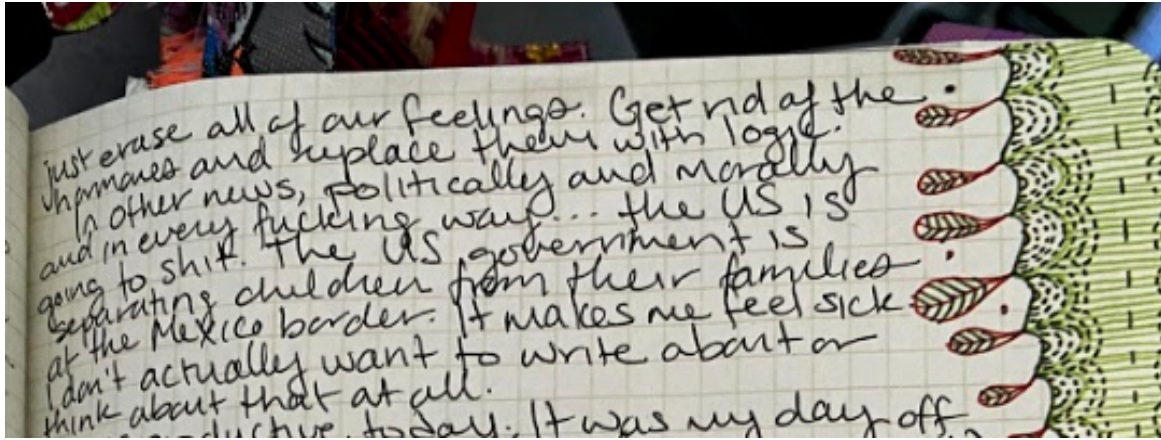 just erase all of our feelings. Get rid of the
hormones and replace them with logic.
In other news, politically and morally
and in every fucking way... the US is
going to shit. The US government is
separating children from their families
at the Mexico border. It makes me feel sick.
I don't actually want to write about or
think about that at all.
productive today. It was my day off